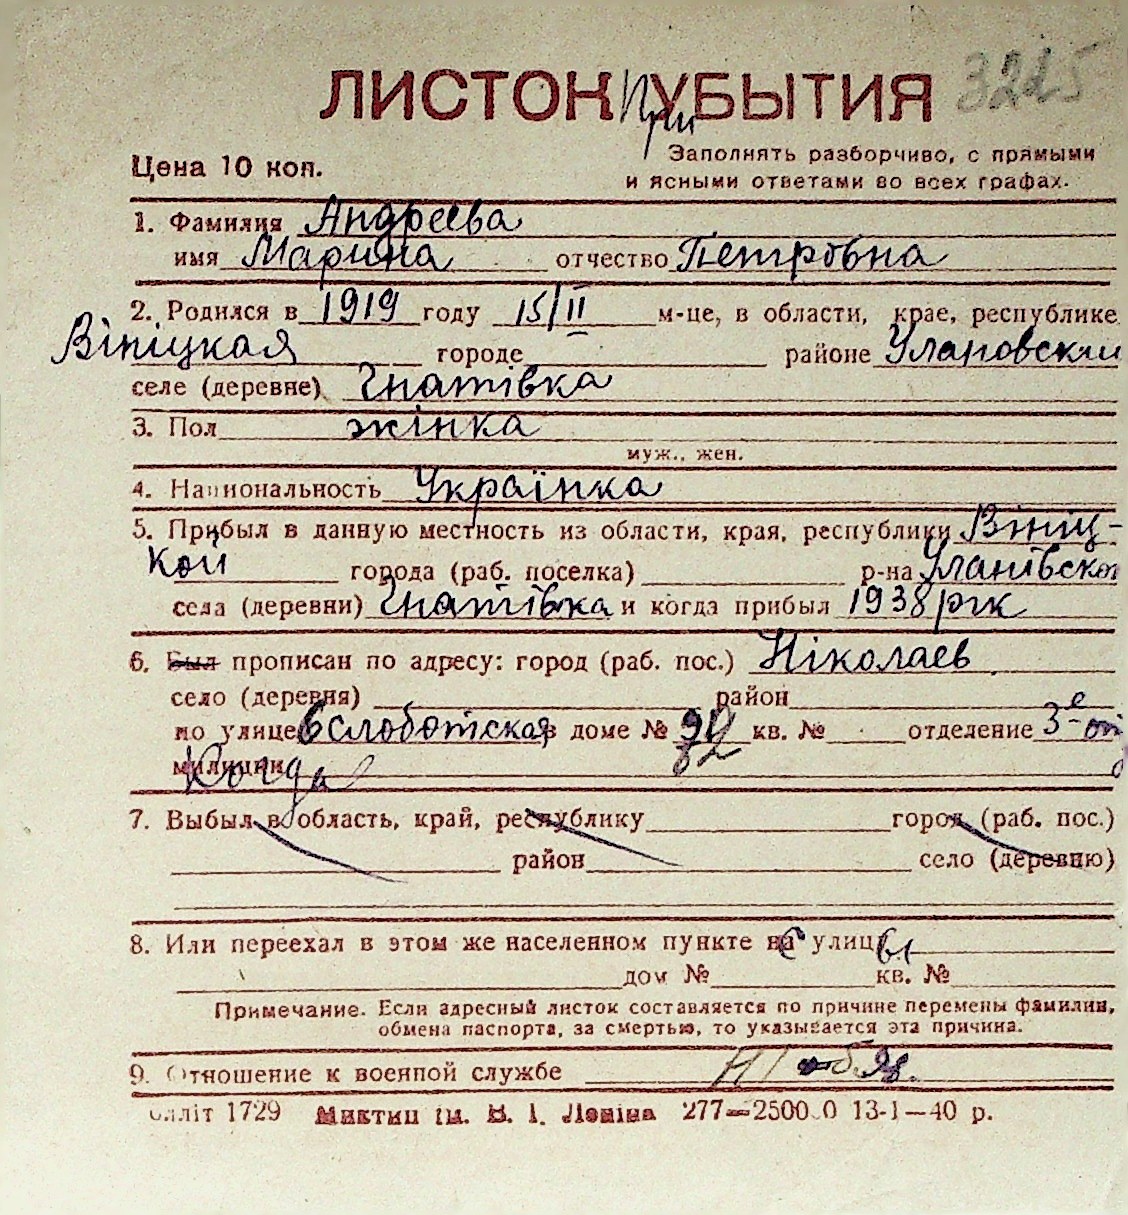 3225
ЛИСТОК ПриУБЫТИЯ
Цена 10 коп.
Заполнять разборчиво, с прямыми
и ясными ответами во всех графах.
1. Фамилия Андреева
имя Марина отчество Петровна
2. Родился в 1919 году 15/II м-це, в области, крае, республике
Вініцкая городе районе Улановский
селе (деревне) Гнатівка
3. Пол жінка
муж., жен.
4. Национальность Українка
5. Прибыл в данную местность из области, края, республики Вініц-
кой города (раб. поселка) р-на Уланівской
села (деревни) Гнатівка и когда прибыл 1938 рік
6. Был прописан по адресу: город (раб. пос.) Ніколаев
село (деревня) район
по улице 6 Слоботская в доме № 92 кв. № отделение 3-е
милиции Когда
7. Выбыл в область, край, республику город (раб. пос.)
район село (деревню)
8. Или переехал в этом же населенном пункте с улицы
дом № кв. №
Примечание. Если адресный листок составляется по причине перемены фамилии,
обмена паспорта, за смертью, то указывается эта причина.
9. Отношение к военной службе Н/об яз.
літ 1729 Миктип ім. В. І. Леніна 277—2500 0 13-1—40 р.